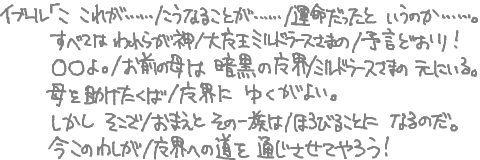 イブール「こ これが……/こうなることが……/運命だったと いうのか……。
すべては われらが神/大魔王ミルドラースさまの/予言どおり!
○○よ。/お前の母は 暗黒の魔界/ミルドラースさまの 元にいる。
母を助けたくば/魔界に ゆくがよい。
しかし そこで/おまえと その一族は/ほろびることに なるのだ。
今このわしが/魔界への道を 通じさせてやろう!